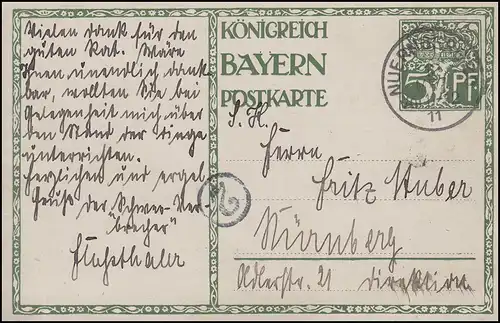 Vielen Dank für den
guten Rat. Wäre
Ihnen unendlich dank
bar, wollten Sie bei
Gelegenheit mich über
den Stand der Dinge
unterrichten.
Herzlichen und ergeb.
Gruss der Schwer-Ver-
"brecher"
KÖNIGREICH
BAYERN
POSTKARTE
5 Pf
NUERNBERG
11
S. H.
Herrn
Fritz Huber
Nürnberg
Adlerstr. 21 Direktion